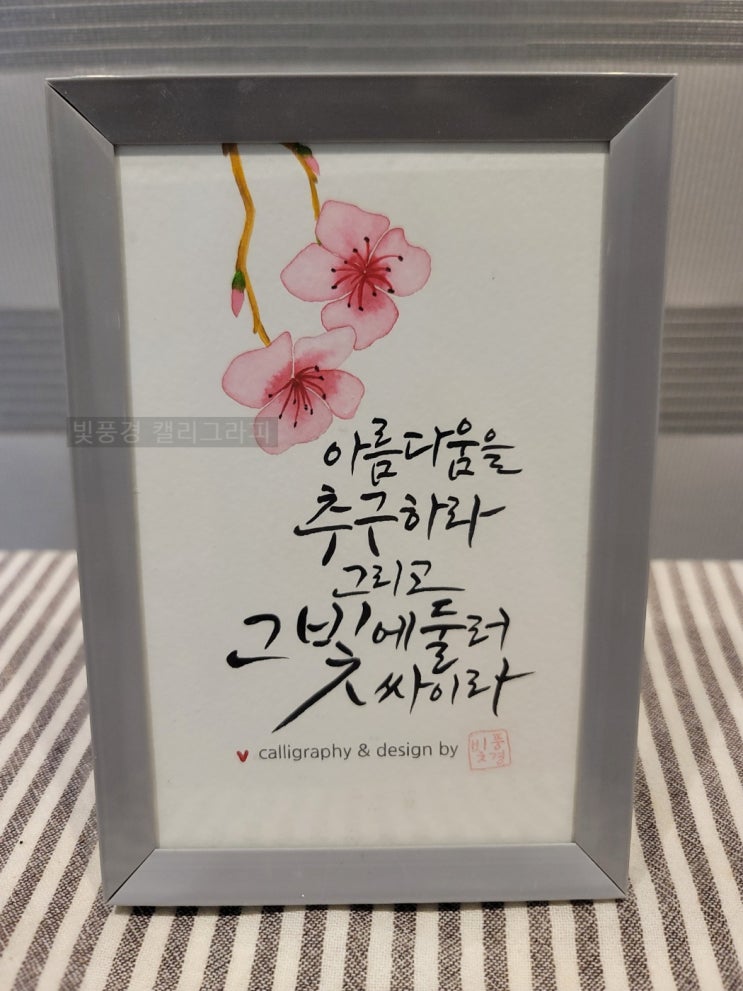 빛풍경 캘리그라피
아름다움을
추구하라
그리고
그 빛에 둘러
싸이라
calligraphy & design by
빛풍경